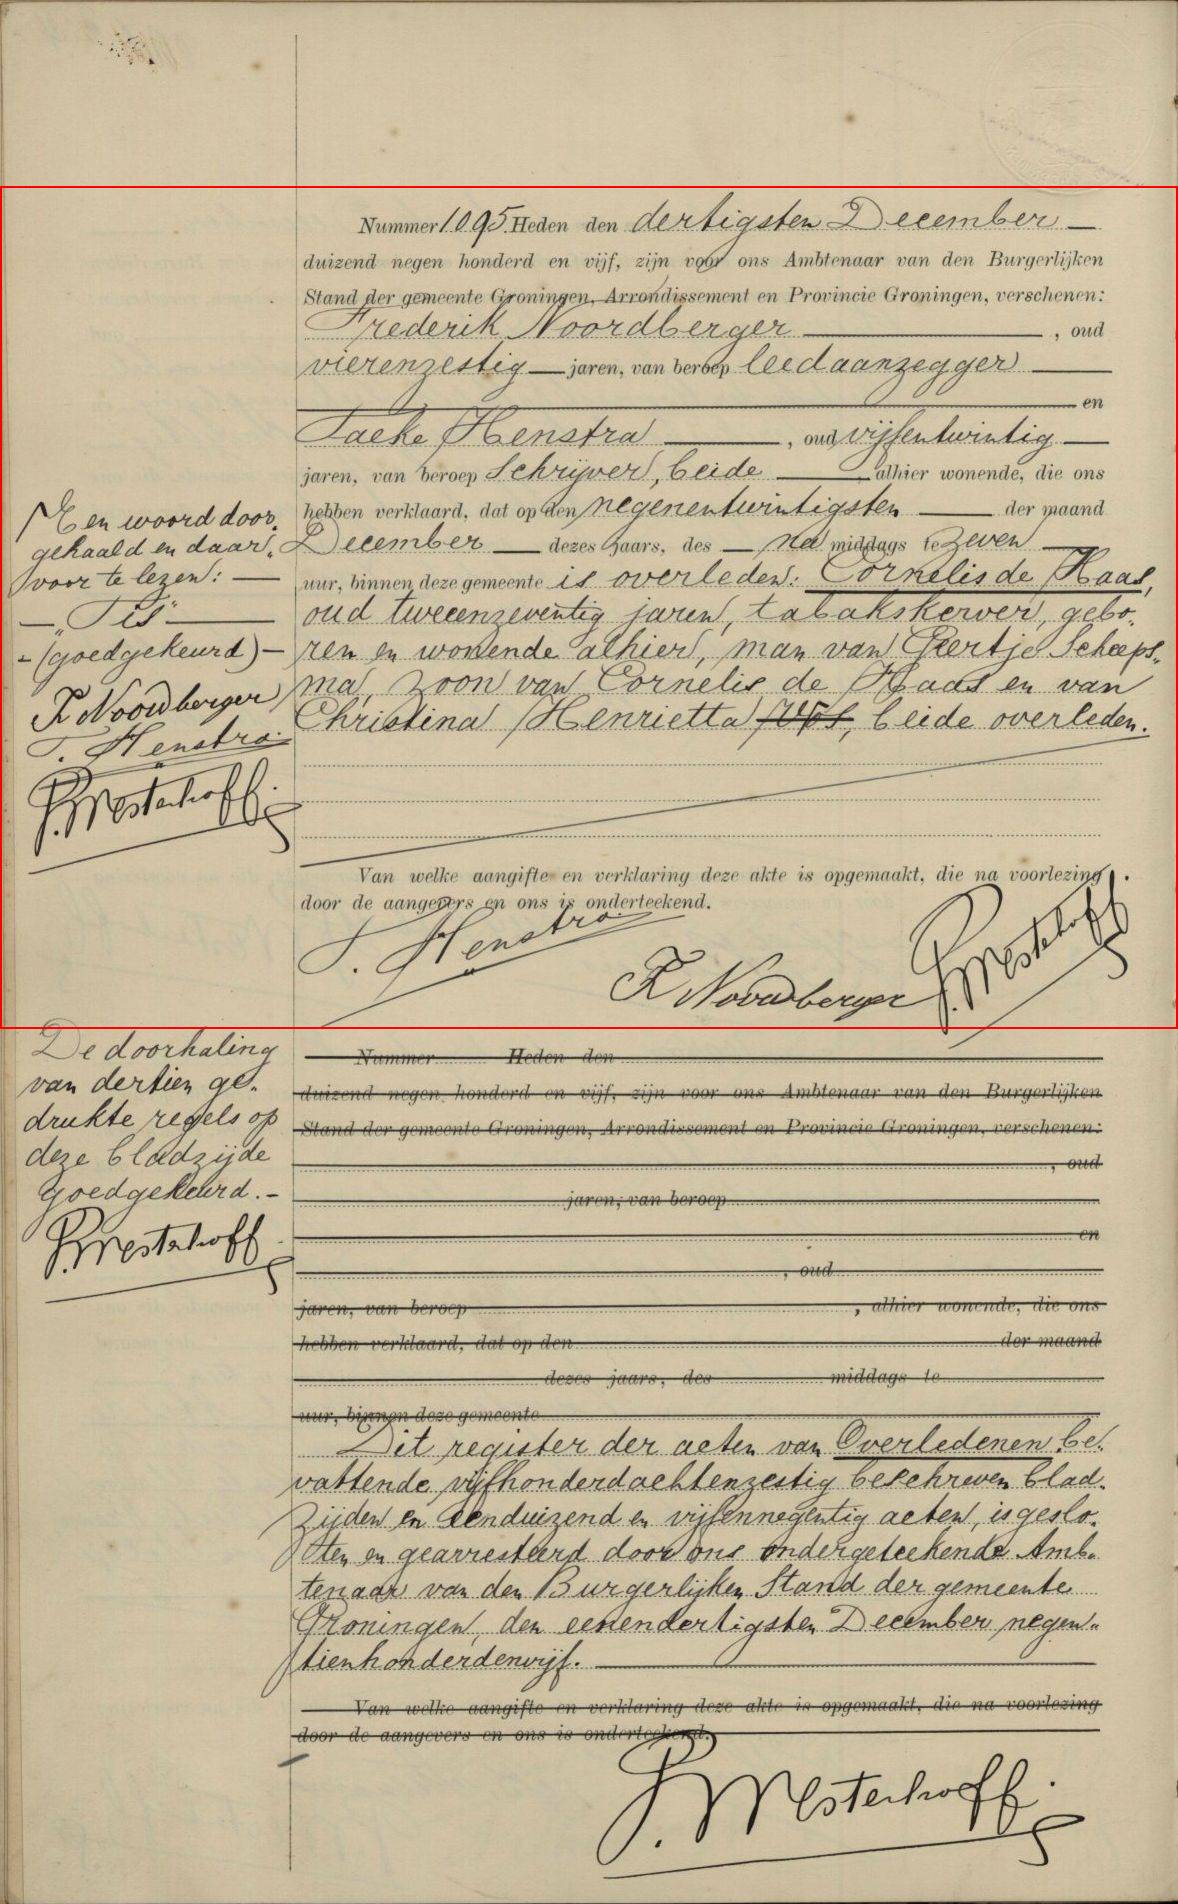 Nummer 1095. Heden den dertigsten December
duizend negen honderd en vijf, zijn voor ons Ambtenaar van den Burgerlijken
Stand der gemeente Groningen, Arrondissement en Provincie Groningen, verschenen:
Frederik Noordberger, oud
vierenzestig jaren, van beroep leedaanzegger
en
Taeke Henstra, oud vijfentwintig
jaren, van beroep Schrijver, beide alhier wonende, die ons
hebben verklaard, dat op den negenentwintigsten der maand
December dezes jaars, des na middags te zeven
uur, binnen deze gemeente is overleden: Cornelis de Haas,
oud tweeenzeventig jaren, tabakskerver, gebo-
ren en wonende alhier, man van Geertje Scheeps-
ma, zoon van Cornelis de Haas en van
Christina Henrietta Vos, beide overleden.
Een woord door-
gehaald en daar-
voor te lezen:
(goedgekeurd)
F Noordberger
T. Henstra
P. Westerhoff
Van welke aangifte en verklaring deze akte is opgemaakt, die na voorlezing
door de aangevers en ons is onderteekend.
T. Henstra
F Noordberger
P. Westerhoff
De doorhaling
van dertien ge-
drukte regels op
deze bladzijde
goedgekeurd.-
P. Westerhoff
Nummer Heden den
duizend negen honderd en vijf, zijn voor ons Ambtenaar van den Burgerlijken
Stand der gemeente Groningen, Arrondissement en Provincie Groningen, verschenen:
, oud
jaren, van beroep
en
, oud
jaren, van beroep , alhier wonende, die ons
hebben verklaard, dat op den der maand
dezes jaars, des middags te
uur, binnen deze gemeente
Dit register der acten van Overledenen be-
vattende vijfhonderdachtenzestig beschreven blad-
zijden en eenduizend en vijfennegentig acten, is geslo-
ten en gearresteerd door ons ondergeteekende Amb-
tenaar van den Burgerlijken Stand der gemeente
Groningen, den eenendertigsten December negen-
tienhonderdenvijf.
Van welke aangifte en verklaring deze akte is opgemaakt, die na voorlezing
door de aangevers en ons is onderteekend.
P. Westerhoff